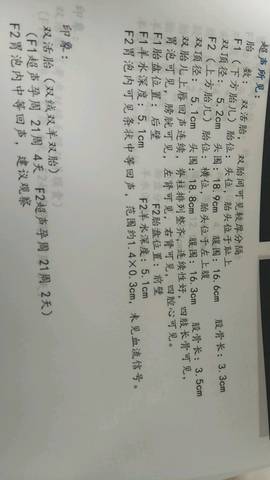 超声所见：
胎 数：双活胎，双胎间可见较厚分隔
F1（下方胎儿）胎位：头位，胎头位于耻上
双顶径：5.2cm 头围：18.9cm 腹围：16.6cm 股骨长：3.3cm
F2（上方胎儿）胎位：横位，胎头位于左上腹
双顶径：5.1cm 头围：18.8cm 腹围：16.3cm 股骨长：3.5cm
双胎儿上唇回声连续，脊柱排列整齐，连续性好，四肢长骨可见，
胃泡可见，膀胱可见，左肾可见，右肾可见，四腔心可见。
F1胎盘位置：后壁 F2胎盘位置：前壁
F1羊水深度：5.1cm F2羊水深度：5.1cm
F2胃泡内可见条状中等回声，范围约1.4×0.3cm，未见血流信号。
印象：
双活胎（双绒双羊双胎）
（F1超声孕周 21周 4天，F2超声孕周 21周 2天）
F2胃泡内中等回声，建议观察